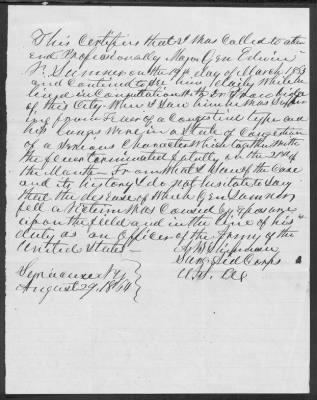 This Certifies that I was called to atten
end Professionally Major Gen Edwin
V. Sumner on the 19th day of March 1863
and Continued to see him daily while he
lived in Consultation with Dr
of this City. When I saw him he was suffer
ing from Fever of a Congestive type and
his lungs were in a state of Congestion
of a serious Character which together with
the fever terminated fatally on the 21st of
the Month— From what I saw of the Case
and its history I do not hesitate to say
that the disease of which Gen Sumner
fell a Victim was Caused by exposure
upon the field and in the line of his
duty as an Officer of the Army of the
United States—
Surg 3d Corps
Syracuse N.Y.
August 29, 1864